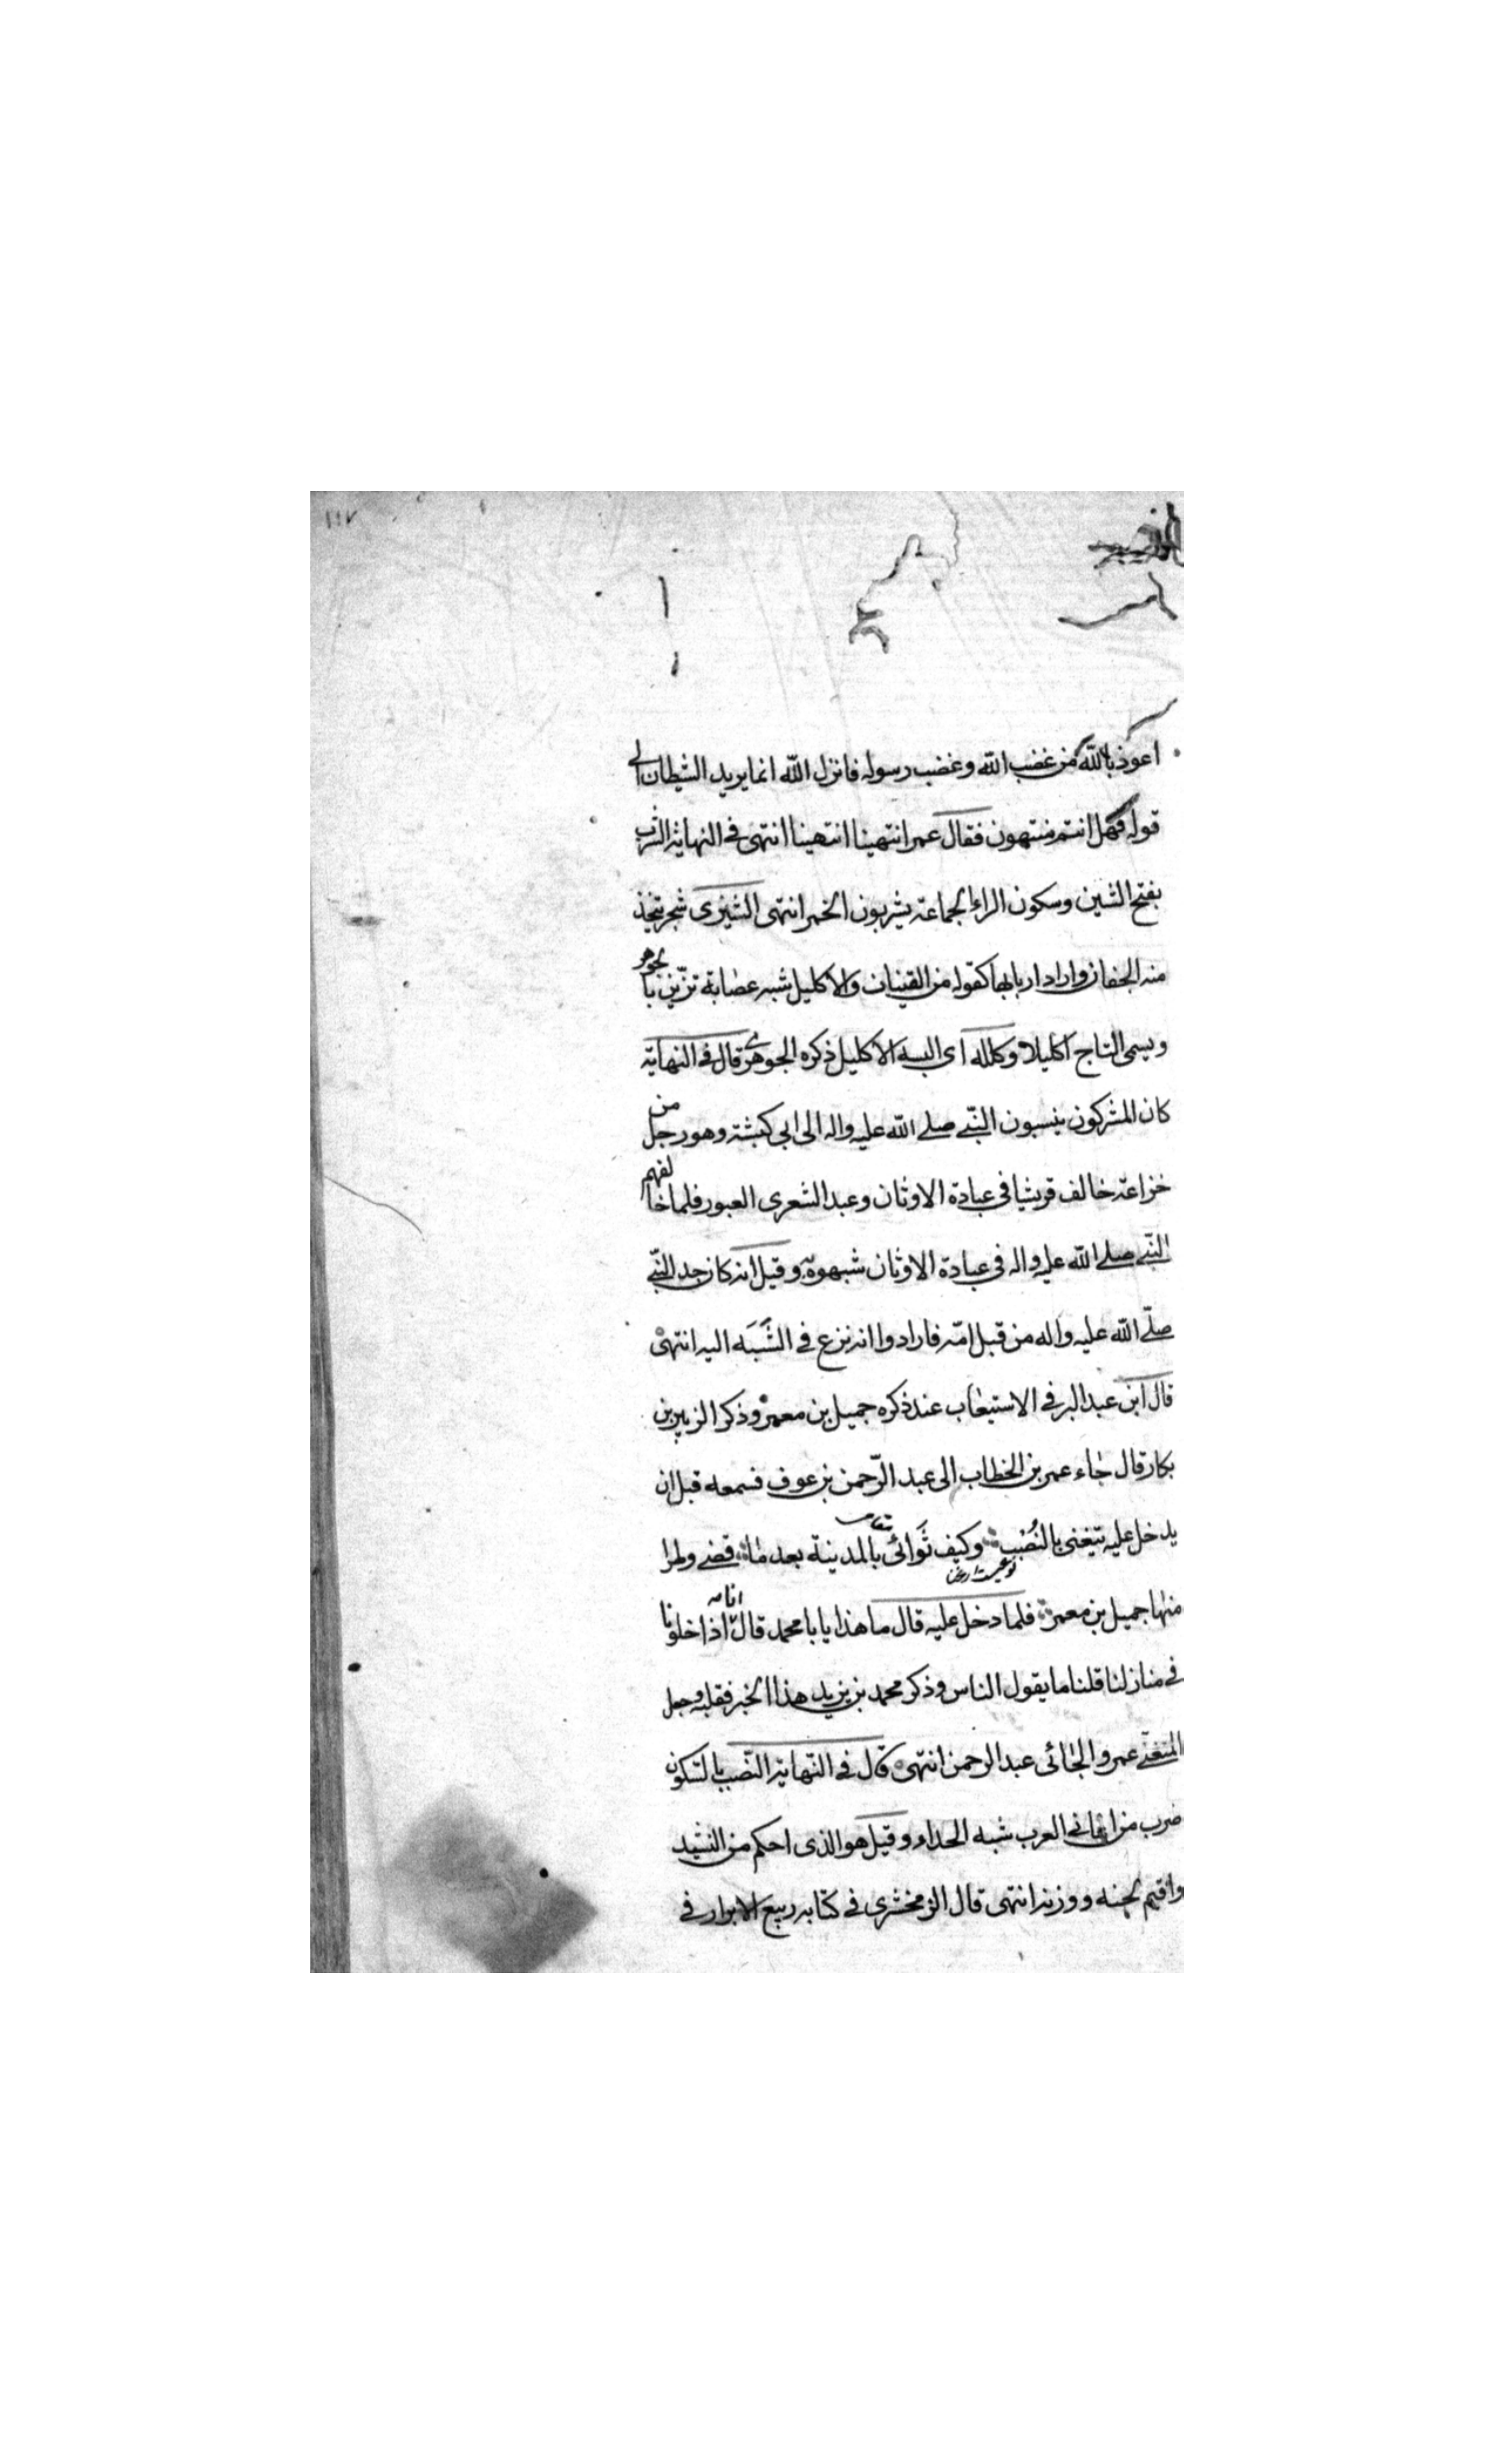 ١١٧
اعوذ بالله من غضب الله وغضب رسوله فانزل الله انما يريد الشيطان الى
قوله فهل انتم منتهون فقال عمر انتهينا انتهينا انتهى في النهاية الشرب
بفتح الشين وسكون الراء الجماعة يشربون الخمر انتهى الشيزى شجر يتخذ
منه الجفان واراد اربابها كقوله من القينات والاكليل شبه عصابة تزين بالجوهر
ويسمى التاج اكليلا وكلله اى البسه الاكليل ذكره الجوهرى قال في النهاية
كان المشركون ينسبون النبي صلى الله عليه واله الى ابي كبشة وهو رجل من
خزاعة خالف قريشا في عبادة الاوثان وعبد الشعرى العبور فلما خالفهم
النبي صلى الله عليه واله في عبادة الاوثان شبهوه به وقيل انه كان جد النبي
صلّى الله عليه واله من قبل امّه فارادوا انه نزع في الشَّبَه اليه انتهى
قال ابن عبد البر في الاستيعاب عند ذكره جميل بن معمر وذكر الزبير بن
بكار قال جاء عمر بن الخطاب الى عبد الرّحمن بن عوف فسمعه قبل ان
يدخل عليه يتغنى بالنُصْب وكيف ثَوائى بالمدينة بعد ما قضى وطرا
منها جميل بن معمر فلما دخل عليه قال ما هذا يا با محمد قال انا اذا خلونا
في منازلنا قلنا ما يقول الناس وذكر محمد بن يزيد هذا الخبر فقلبه وجعل
المتغنّى عمر والجائى عبد الرحمن انتهى قال في النّهاية النّصب بالسّكون
ضرب من اغاني العرب شبه الحداء وقيل هو الذى احكم من النشيد
واقيم لحنه ووزنه انتهى قال الزمخشرى في كتابه ربيع الابرار في